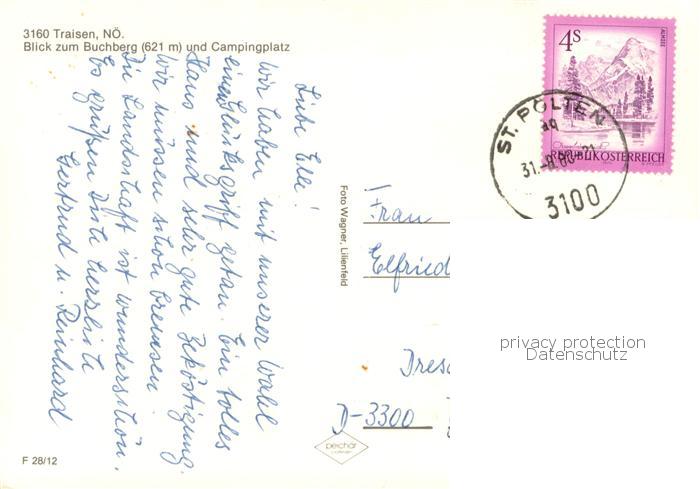 3160 Traisen, NÖ.
Blick zum Buchberg (621 m) und Campingplatz
Liebe Elli!
Wir haben mit unserer Wahl
einen Glücksgriff getan. Ein tolles
Haus und sehr gute Beköstigung.
Wir müssen schon bremsen.
Die Landschaft ist wunderschön.
Es grüßen Dich herzlich
Gertrud u. Reinhard
F 28/12
Foto Wagner, Lilienfeld
4S
ALMSEE
REPUBLIK ÖSTERREICH
ST. PÖLTEN
3100
Frau
Elfried
Dres
D-3300
privacy protection
Datenschutz